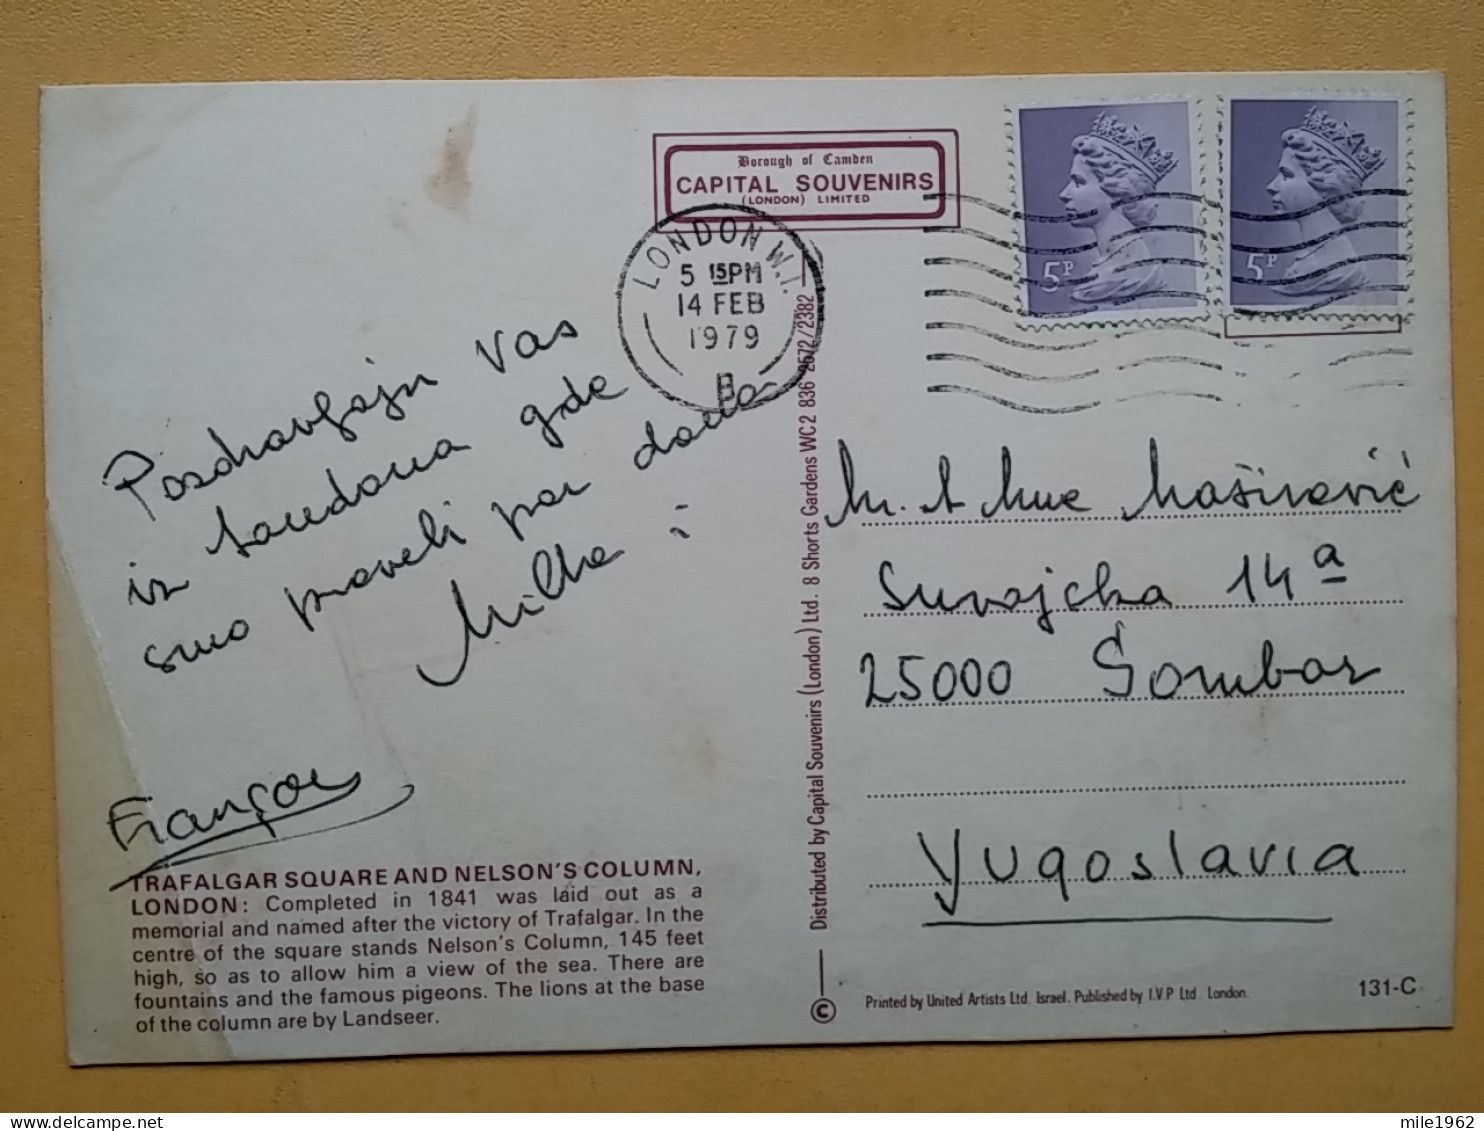 Borough of Camden
CAPITAL SOUVENIRS
(LONDON) LIMITED
LONDON W.1.
5 15PM
14 FEB
1979
B
5P
5P
Pozdravljaju Vas
iz Londona gde
smo proveli par dana
Milka i
François
TRAFALGAR SQUARE AND NELSON'S COLUMN,
LONDON: Completed in 1841 was laid out as a
memorial and named after the victory of Trafalgar. In the
centre of the square stands Nelson's Column, 145 feet
high, so as to allow him a view of the sea. There are
fountains and the famous pigeons. The lions at the base
of the column are by Landseer.
© Distributed by Capital Souvenirs (London) Ltd. 8 Shorts Gardens WC2 836 2572/2382
Mr. & Mme Maširević
Suvajcka 14a
25000 Sombor
Yugoslavia
Printed by United Artists Ltd. Israel. Published by I.V.P Ltd. London.
131-C
mile1962